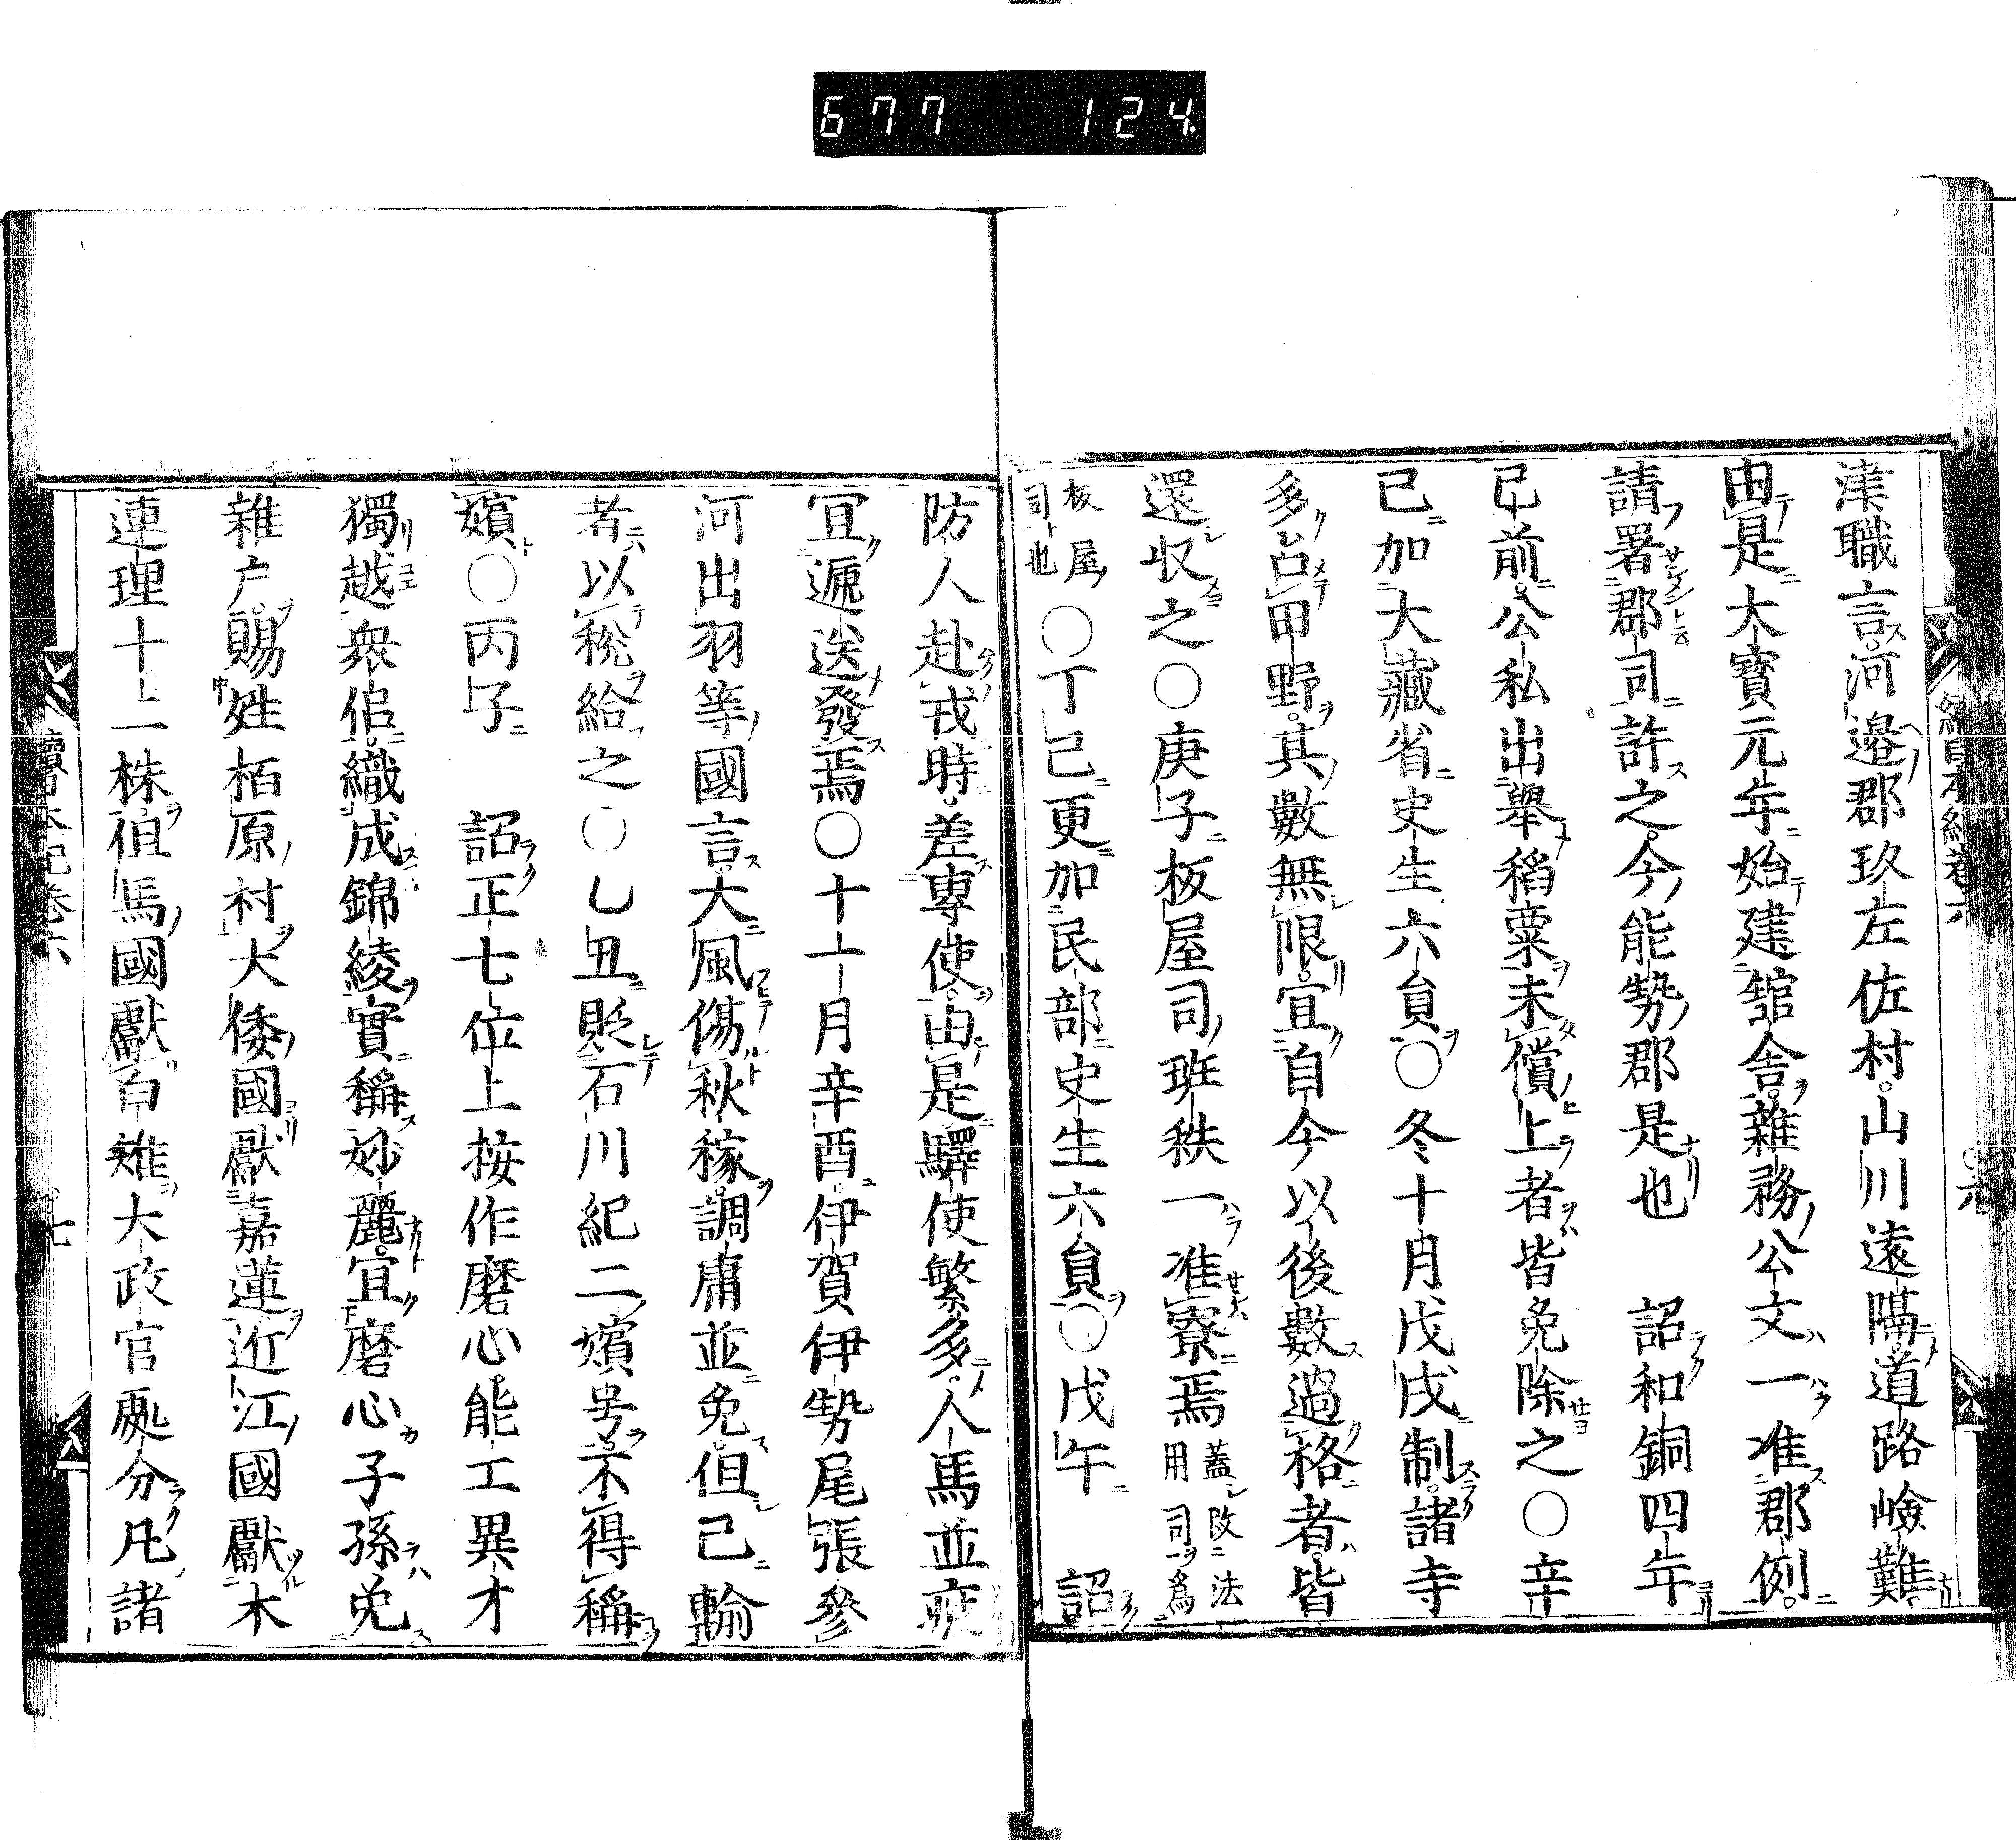 677 124
津職言河邊郡玖左佐村山川遠隔道路嶮難
由是大寶元年始建舘舎雜務公文一准郡例
請署郡司許之今能勢郡是也 詔和銅四年
已前公私出舉稻粟未償上者皆免除之○辛
已加大藏省史生六負○冬十月戊戌制諸寺
多占田野其數無限宜自今以後數過格者皆
還収之○庚子板屋司班秩一准寮焉蓋改法用司爲
板屋司也○丁已更加民部史生六負○戊午 詔
防人赴戎時差專使由是驛使繁多人馬並疲
宜遞送發焉○十一月辛酉伊賀伊勢尾張參
河出羽等國言大風傷秋稼調庸並免但已輸
者以税給之○乙丑貶石川紀二嬪号不得稱
嬪○丙子 詔正七位上桉作磨心能工異才
獨越衆侶織成錦綾實稱妙麗宜磨心子孫免
雜戸賜姓栢原村大倭國獻嘉蓮近江國獻木
連理十二株但馬國獻白雉大政官處分凡諸
續日本紀卷六